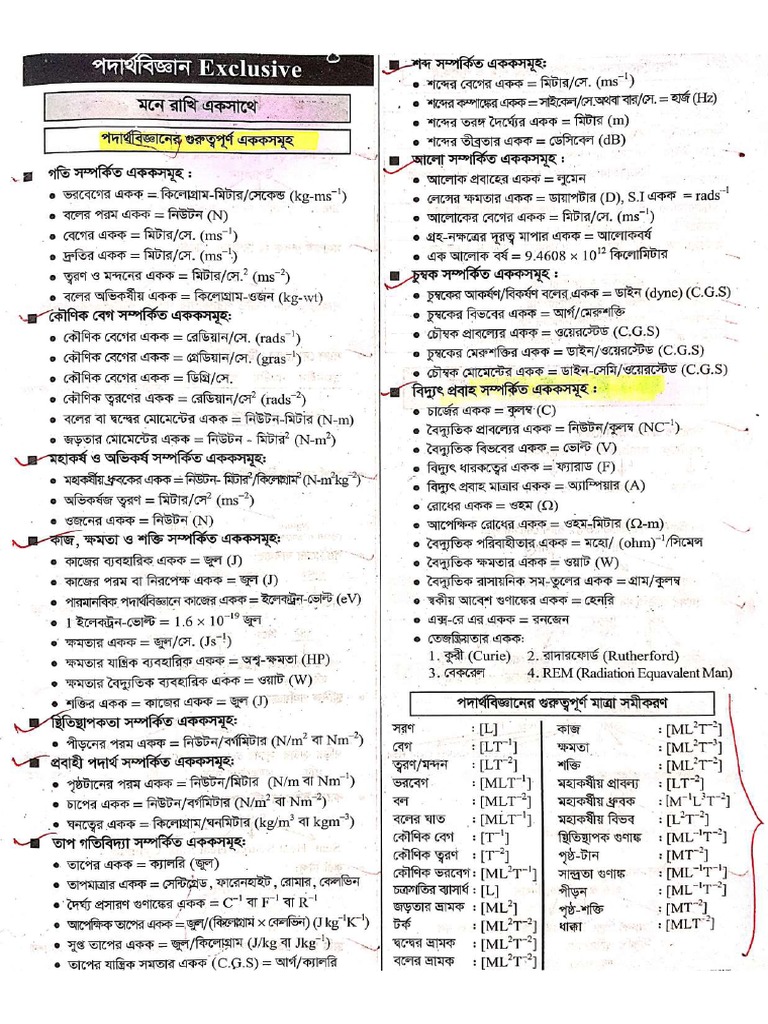 পদার্থবিজ্ঞান Exclusive
মনে রাখি একসাথে
পদার্থবিজ্ঞানের গুরুত্বপূর্ণ এককসমূহ
■ গতি সম্পর্কিত এককসমূহ :
• ভরবেগের একক = কিলোগ্রাম-মিটার/সেকেন্ড (kg-ms⁻¹)
• বলের পরম একক = নিউটন (N)
• বেগের একক = মিটার/সে. (ms⁻¹)
• দ্রুতির একক = মিটার/সে. (ms⁻¹)
• ত্বরণ ও মন্দনের একক = মিটার/সে.² (ms⁻²)
• বলের অভিকর্ষীয় একক = কিলোগ্রাম-ওজন (kg-wt)
■ কৌণিক বেগ সম্পর্কিত এককসমূহ :
• কৌণিক বেগের একক = রেডিয়ান/সে. (rads⁻¹)
• কৌণিক বেগের একক = গ্রেডিয়ান/সে. (gras⁻¹)
• কৌণিক বেগের একক = ডিগ্রি/সে.
• কৌণিক ত্বরণের একক = রেডিয়ান/সে² (rads⁻²)
• বলের বা দ্বন্দ্বের মোমেন্টের একক = নিউটন-মিটার (N-m)
• জড়তার মোমেন্টের একক = নিউটন - মিটার² (N-m²)
■ মহাকর্ষ ও অভিকর্ষ সম্পর্কিত এককসমূহ:
• মহাকর্ষীয় ধ্রুবকের একক = নিউটন- মিটার²/কিলোগ্রাম² (N-m²kg⁻²)
• অভিকর্ষজ ত্বরণ = মিটার/সে² (ms⁻²)
• ওজনের একক = নিউটন (N)
■ কাজ, ক্ষমতা ও শক্তি সম্পর্কিত এককসমূহ:
• কাজের ব্যবহারিক একক = জুল (J)
• কাজের পরম বা নিরপেক্ষ একক = জুল (J)
• পারমানবিক পদার্থবিজ্ঞানে কাজের একক = ইলেকট্রন-ভোল্ট (eV)
• 1 ইলেকট্রন-ভোল্ট = 1.6 × 10⁻¹⁹ জুল
• ক্ষমতার একক = জুল/সে. (Js⁻¹)
• ক্ষমতার যান্ত্রিক ব্যবহারিক একক = অশ্ব-ক্ষমতা (HP)
• ক্ষমতার বৈদ্যুতিক ব্যবহারিক একক = ওয়াট (W)
• শক্তির একক = কাজের একক = জুল (J)
■ স্থিতিস্থাপকতা সম্পর্কিত এককসমূহ:
• পীড়নের পরম একক = নিউটন/বর্গমিটার (N/m² বা Nm⁻²)
■ প্রবাহী পদার্থ সম্পর্কিত এককসমূহ:
• পৃষ্ঠটানের পরম একক = নিউটন/মিটার (N/m বা Nm⁻¹)
• চাপের একক = নিউটন/বর্গমিটার (N/m² বা Nm⁻²)
• ঘনত্বের একক = কিলোগ্রাম/ঘনমিটার (kg/m³ বা kgm⁻³)
■ তাপ গতিবিদ্যা সম্পর্কিত এককসমূহ:
• তাপের একক = ক্যালরি (জুল)
• তাপমাত্রার একক = সেন্টিগ্রেড, ফারেনহাইট, রোমার, কেলভিন
• দৈর্ঘ্য প্রসারণ গুণাঙ্কের একক = C⁻¹ বা F⁻¹ বা R⁻¹
• আপেক্ষিক তাপের একক = জুল/(কিলোগ্রাম × কেলভিন) (J kg⁻¹K⁻¹)
• সুপ্ত তাপের একক = জুল/কিলোগ্রাম (J/kg বা Jkg⁻¹)
• তাপের যান্ত্রিক সমতার একক (C.G.S) = আর্গ/ক্যালরি
■ শব্দ সম্পর্কিত এককসমূহ:
• শব্দের বেগের একক = মিটার/সে. (ms⁻¹)
• শব্দের কম্পাঙ্কের একক = সাইকেল/সে.অথবা বার/সে. = হার্জ (Hz)
• শব্দের তরঙ্গ দৈর্ঘ্যের একক = মিটার (m)
• শব্দের তীব্রতার একক = ডেসিবেল (dB)
■ আলো সম্পর্কিত এককসমূহ :
• আলোক প্রবাহের একক = লুমেন
• লেন্সের ক্ষমতার একক = ডায়াপটার (D), S.I একক = rads⁻¹
• আলোকের বেগের একক = মিটার/সে. (ms⁻¹)
• গ্রহ-নক্ষত্রের দূরত্ব মাপার একক = আলোকবর্ষ
• এক আলোক বর্ষ = 9.4608 × 10¹² কিলোমিটার
■ চুম্বক সম্পর্কিত এককসমূহ :
• চুম্বকের আকর্ষণ/বিকর্ষণ বলের একক = ডাইন (dyne) (C.G.S)
• চুম্বকের বিভবের একক = আর্গ/মেরুশক্তি
• চৌম্বক প্রাবল্যের একক = ওয়েরস্টেড (C.G.S)
• চুম্বকের মেরুশক্তির একক = ডাইন/ওয়েরস্টেড (C.G.S)
• চৌম্বক মোমেন্টের একক = ডাইন-সেমি/ওয়েরস্টেড (C.G.S)
■ বিদ্যুৎ প্রবাহ সম্পর্কিত এককসমূহ :
• চার্জের একক = কুলম্ব (C)
• বৈদ্যুতিক প্রাবল্যের একক = নিউটন/কুলম্ব (NC⁻¹)
• বৈদ্যুতিক বিভবের একক = ভোল্ট (V)
• বিদ্যুৎ ধারকত্বের একক = ফ্যারাড (F)
• বিদ্যুৎ প্রবাহ মাত্রার একক = অ্যাম্পিয়ার (A)
• রোধের একক = ওহম (Ω)
• আপেক্ষিক রোধের একক = ওহম-মিটার (Ω-m)
• বৈদ্যুতিক পরিবাহীতার একক = মহো/ (ohm)⁻¹/সিমেন্স
• বৈদ্যুতিক ক্ষমতার একক = ওয়াট (W)
• বৈদ্যুতিক রাসায়নিক সম-তুলের একক = গ্রাম/কুলম্ব
• স্বকীয় আবেশ গুণাঙ্কের একক = হেনরি
• এক্স-রে এর একক = রনজেন
• তেজস্ক্রিয়তার একক:
1. কুরী (Curie) 2. রাদারফোর্ড (Rutherford)
3. বেকরেল 4. REM (Radiation Equavalent Man)
পদার্থবিজ্ঞানের গুরুত্বপূর্ণ মাত্রা সমীকরণ
সরণ : [L]
বেগ : [LT⁻¹]
ত্বরণ/মন্দন : [LT⁻²]
ভরবেগ : [MLT⁻¹]
বল : [MLT⁻²]
বলের ঘাত : [MLT⁻¹]
কৌণিক বেগ : [T⁻¹]
কৌণিক ত্বরণ : [T⁻²]
কৌণিক ভরবেগ : [ML²T⁻¹]
চক্রগতির ব্যাসার্ধ : [L]
জড়তার ভ্রামক : [ML²]
টর্ক : [ML²T⁻²]
দ্বন্দ্বের ভ্রামক : [ML²T⁻²]
বলের ভ্রামক : [ML²T⁻²]
কাজ : [ML²T⁻²]
ক্ষমতা : [ML²T⁻³]
শক্তি : [ML²T⁻²]
মহাকর্ষীয় প্রাবল্য : [LT⁻²]
মহাকর্ষীয় ধ্রুবক : [M⁻¹L³T⁻²]
মহাকর্ষীয় বিভব : [L²T⁻²]
স্থিতিস্থাপক গুণাঙ্ক : [ML⁻¹T⁻²]
পৃষ্ঠ-টান : [MT⁻²]
সান্দ্রতা গুণাঙ্ক : [ML⁻¹T⁻¹]
পীড়ন : [ML⁻¹T⁻²]
পৃষ্ঠ-শক্তি : [MT⁻²]
ধাক্কা : [MLT⁻²]